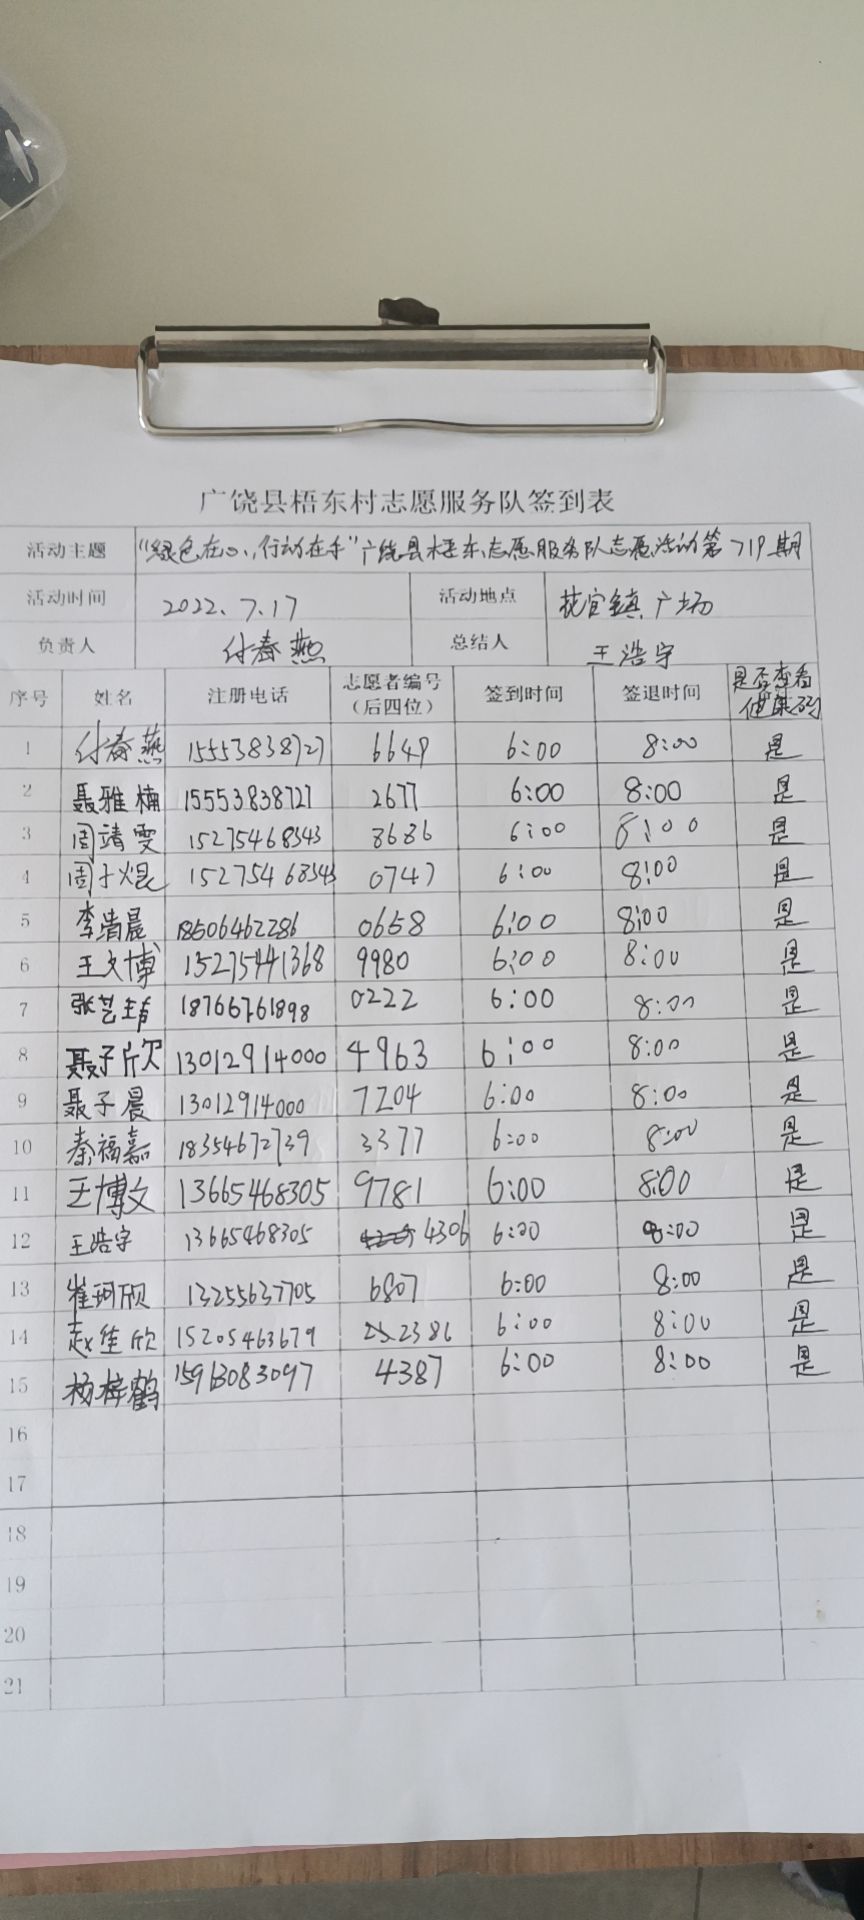 广饶县梧东村志愿服务队签到表
活动主题 "绿色在心,行动在手"广饶县梧东志愿服务队志愿活动第719期
活动时间 2022.7.17 活动地点 花官镇广场
负责人 付春燕 总结人 王浩宇
序号 姓名 注册电话 志愿者编号(后四位) 签到时间 签退时间 是否查看健康码
1 付春燕 15553838727 6649 6:00 8:00 是
2 聂雅楠 15553838727 2677 6:00 8:00 是
3 周靖雯 15275468343 8686 6:00 8:00 是
4 周子焜 15275468343 0747 6:00 8:00 是
5 李清晨 18506462286 0658 6:00 8:00 是
6 王文博 15275441368 9980 6:00 8:00 是
7 张艺 18766761898 0222 6:00 8:00 是
8 聂子欣 13012914000 4963 6:00 8:00 是
9 聂子晨 13012914000 7204 6:00 8:00 是
10 秦福嘉 18354672739 3377 6:00 8:00 是
11 王博文 13665468305 9781 6:00 8:00 是
12 王浩宇 13665468305 4306 6:00 8:00 是
13 崔珂欣 13255637705 6807 6:00 8:00 是
14 赵佳欣 15205463679 2386 6:00 8:00 是
15 杨梓鹤 15963083097 4387 6:00 8:00 是
16
17
18
19
20
21